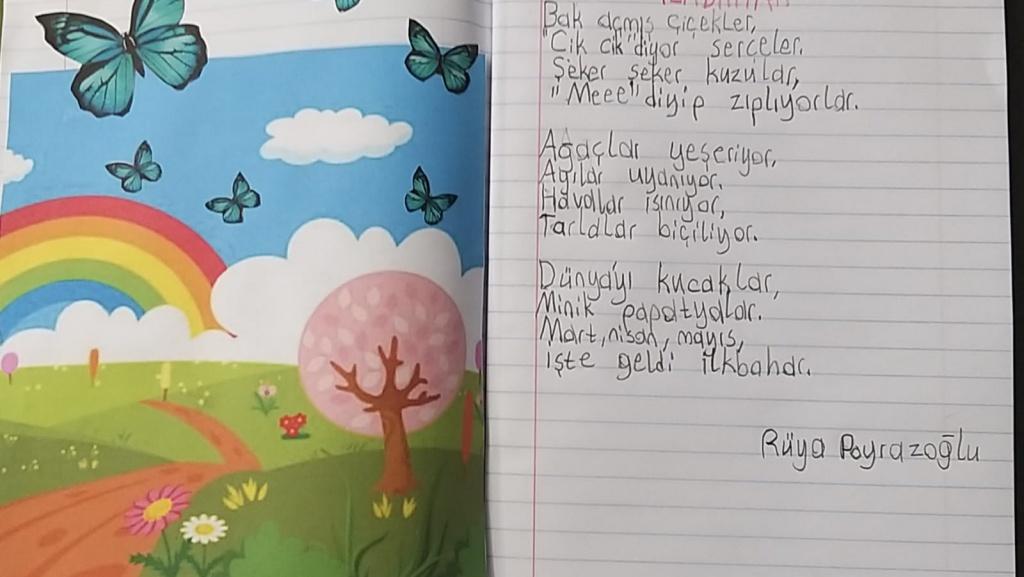 Bak açmış çiçekler,
"Cik cik" diyor serçeler.
Şeker şeker kuzular,
"Meee" diyip zıplıyorlar.
Ağaçlar yeşeriyor,
Arılar uyanıyor.
Havalar ısınıyor,
Tarlalar biçiliyor.
Dünya'yı kucaklar,
Minik papatyalar.
Mart, nisan, mayıs,
İşte geldi ilkbahar.
Rüya Poyrazoğlu